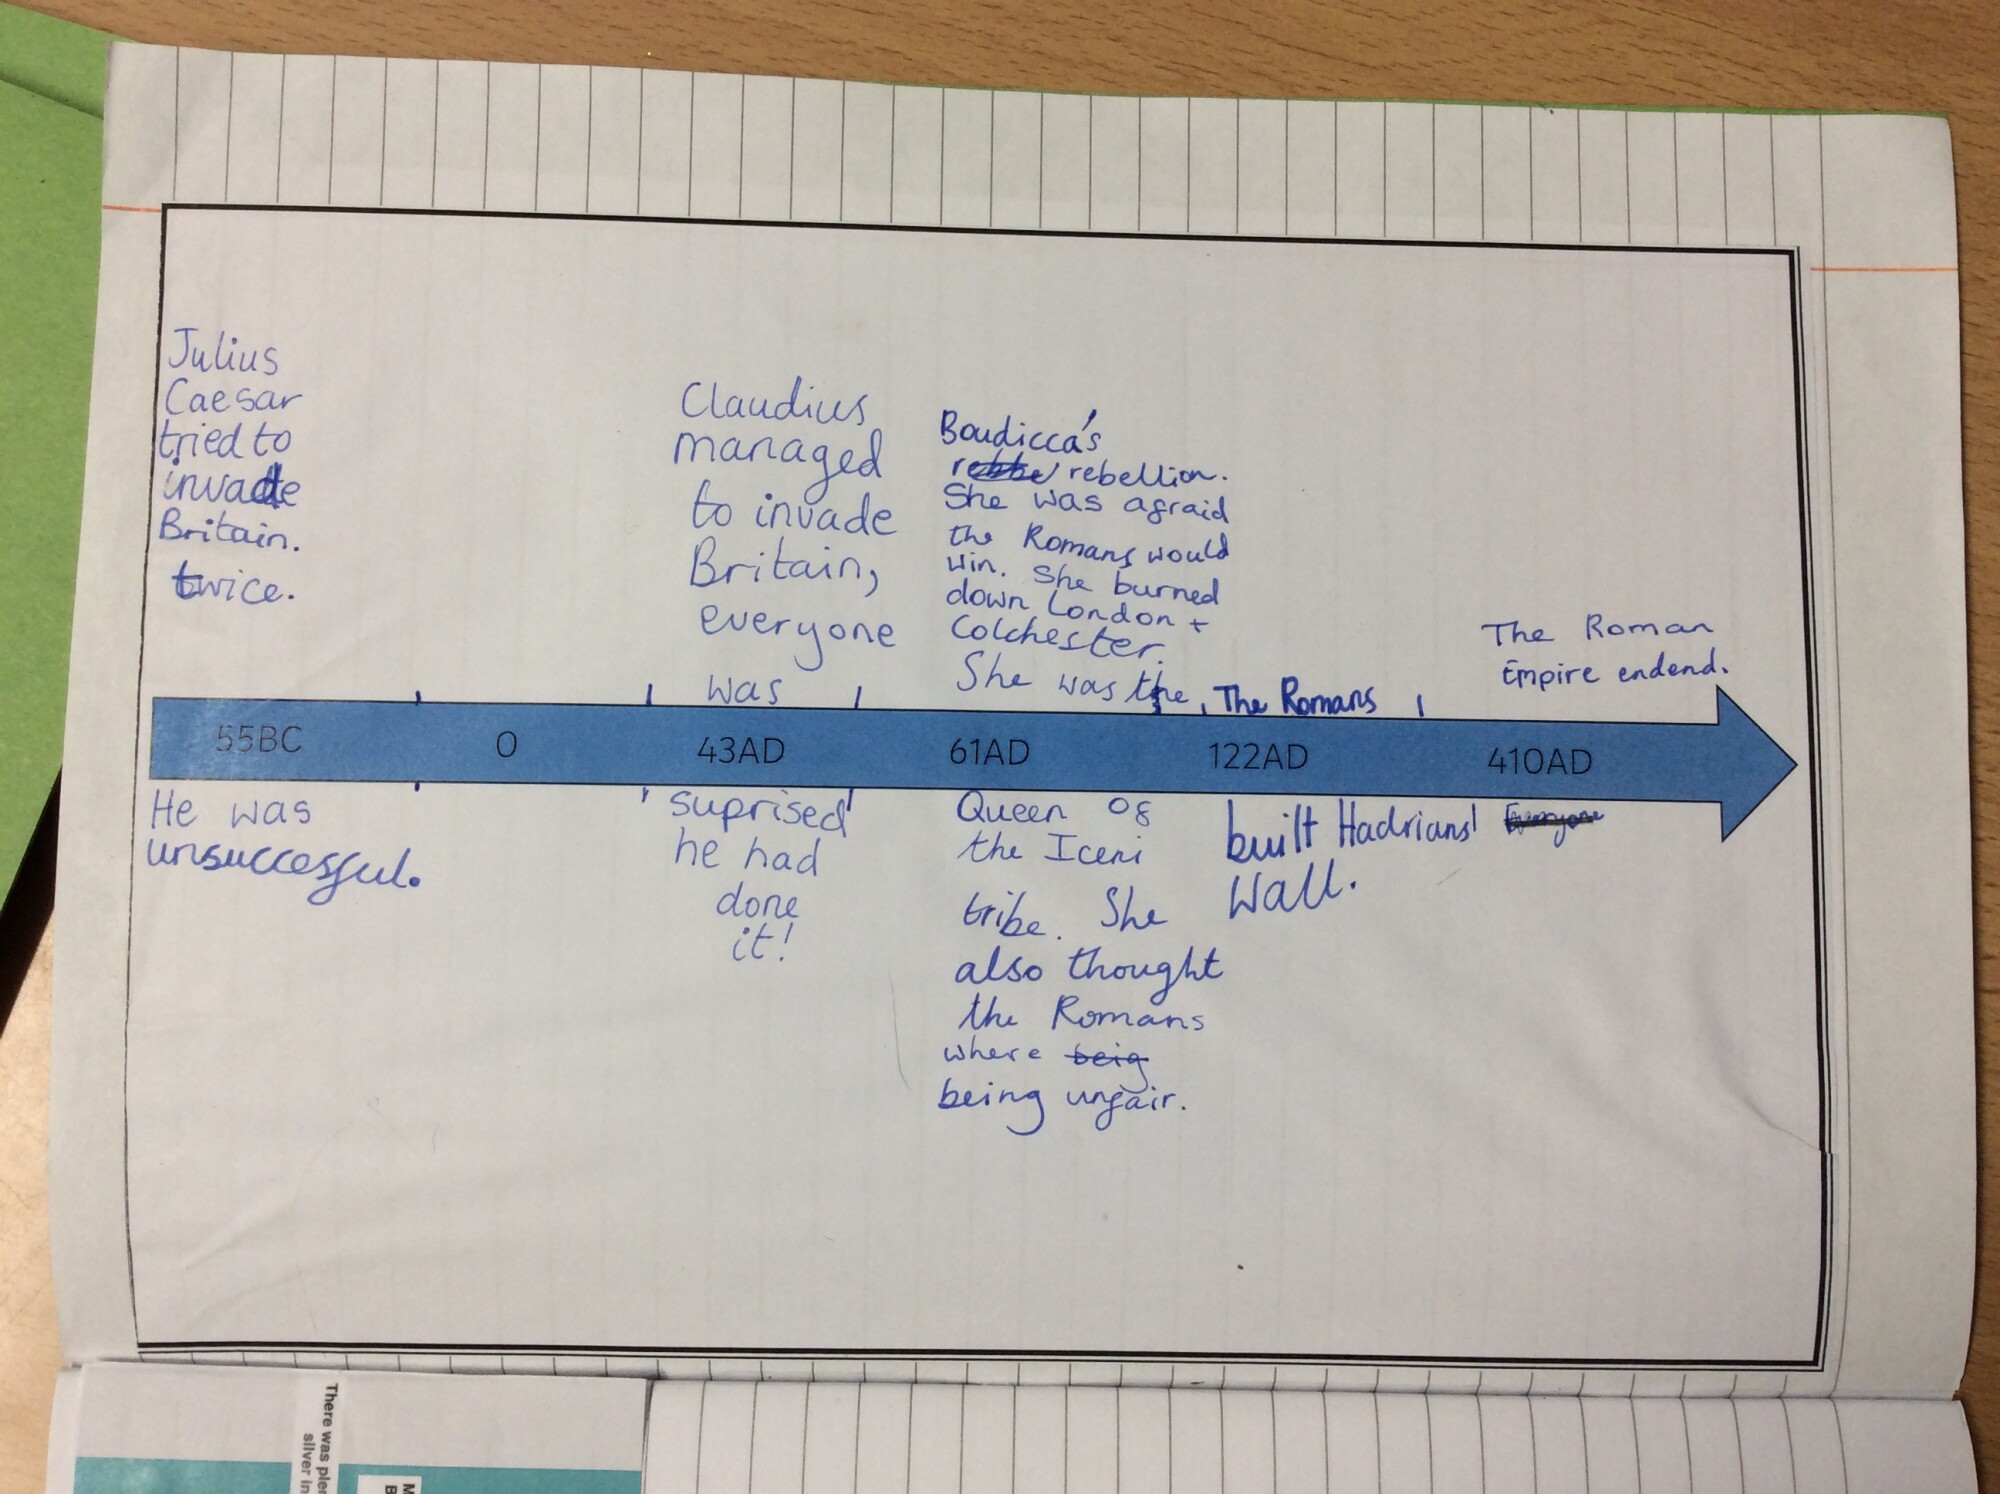 Julius
Caesar
tried to
invade
Britain.
twice.
55BC
He was
unsuccessful.
0
Claudius
managed
to invade
Britain,
everyone
was
43AD
suprised
he had
done
it!
Boudicca's
rebbe rebellion.
She was afraid
the Romans would
win. She burned
down London +
Colchester.
She was the
61AD
Queen of
the Iceni
tribe. She
also thought
the Romans
where beig
being unfair.
The Romans
122AD
built Hadrians
Wall.
The Roman
Empire endend.
410AD
Everyone
There was
silver in